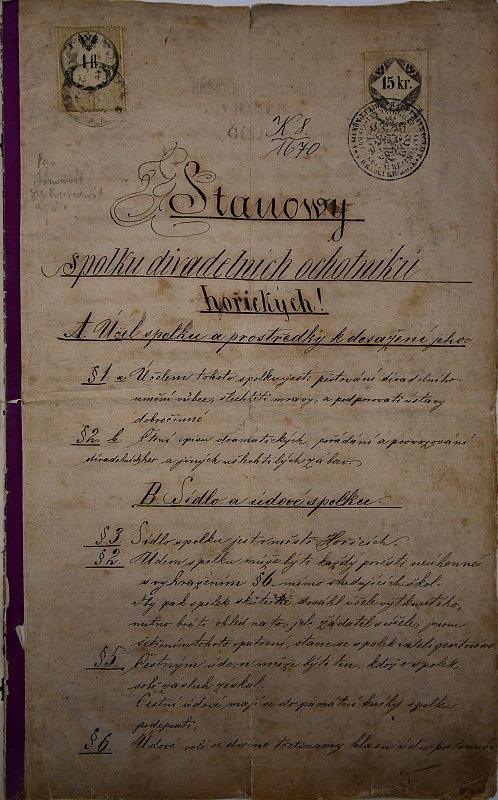 1 fl.
15 kr.
K 8
1670
Stanowy
spolku divadelních ochotníků
hořických!
A. Účel spolku a prostředky k dosažení jeho
§1 a Účelem tohoto spolku jest: pěstování divadelního
umění vůbec, šlechtiti mravy, a podporovati ústavy
dobročinné
§2 b Čtení spisů dramatických, pořádání a provozování
divadelních her a jiných ušlechtilých zábav.
B. Sídlo a údové spolku.
§3. Sídlo spolku jest v městě Hořicích.
§2. Údem spolku může býti každý pověsti neúhonné
s vyhražením §6. mimo studujících škol.
Aby pak spolek skutečně dosáhl účele vytknutého,
nutno bráti ohled na to, jeli žadatel s účele, jenom
šetřením tohoto opatření, stane se spolek inteligentním
§5. Čestným údem může býti ten, kdož o spolek
sobě zásluh získal.
Čestní údové mají se do památní knihy spolku
podepsati.
§6. Údové volí se dvě na třetinamy hlasů údů